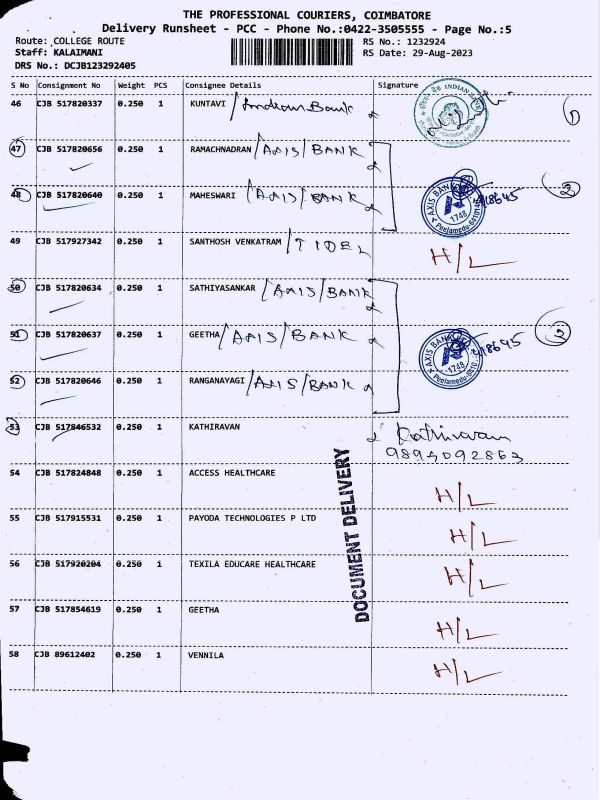 THE PROFESSIONAL COURIERS, COIMBATORE
Delivery Runsheet - PCC - Phone No.:0422-3505555 - Page No.:5
Route: COLLEGE ROUTE RS No.: 1232924
Staff: KALAIMANI RS Date: 29-Aug-2023
DRS No.: DCJB123292405
S No Consignment No Weight PCS Consignee Details Signature
46 CJB 517820337 0.250 1 KUNTAVI /Indian Bank INDIAN BANK 1
47 CJB 517820656 0.250 1 RAMACHNADRAN /AXIS/BANK
48 CJB 517820640 0.250 1 MAHESWARI /AXIS/BANK AXIS BANK 1748 2
49 CJB 517927342 0.250 1 SANTHOSH VENKATRAM /TIDEL H/L
50 CJB 517820634 0.250 1 SATHIYASANKAR /AXIS/BANK
51 CJB 517820637 0.250 1 GEETHA /AXIS/BANK AXIS BANK 1748 Peelamedu 2
52 CJB 517820646 0.250 1 RANGANAYAGI /AXIS/BANK
53 CJB 517846532 0.250 1 KATHIRAVAN Kathiravan
9894092863
54 CJB 517824848 0.250 1 ACCESS HEALTHCARE H/L
55 CJB 517915531 0.250 1 PAYODA TECHNOLOGIES P LTD H/L
56 CJB 517920204 0.250 1 TEXILA EDUCARE HEALTHCARE H/L
57 CJB 517854619 0.250 1 GEETHA H/L
58 CJB 89612402 0.250 1 VENNILA H/L
DOCUMENT DELIVERY